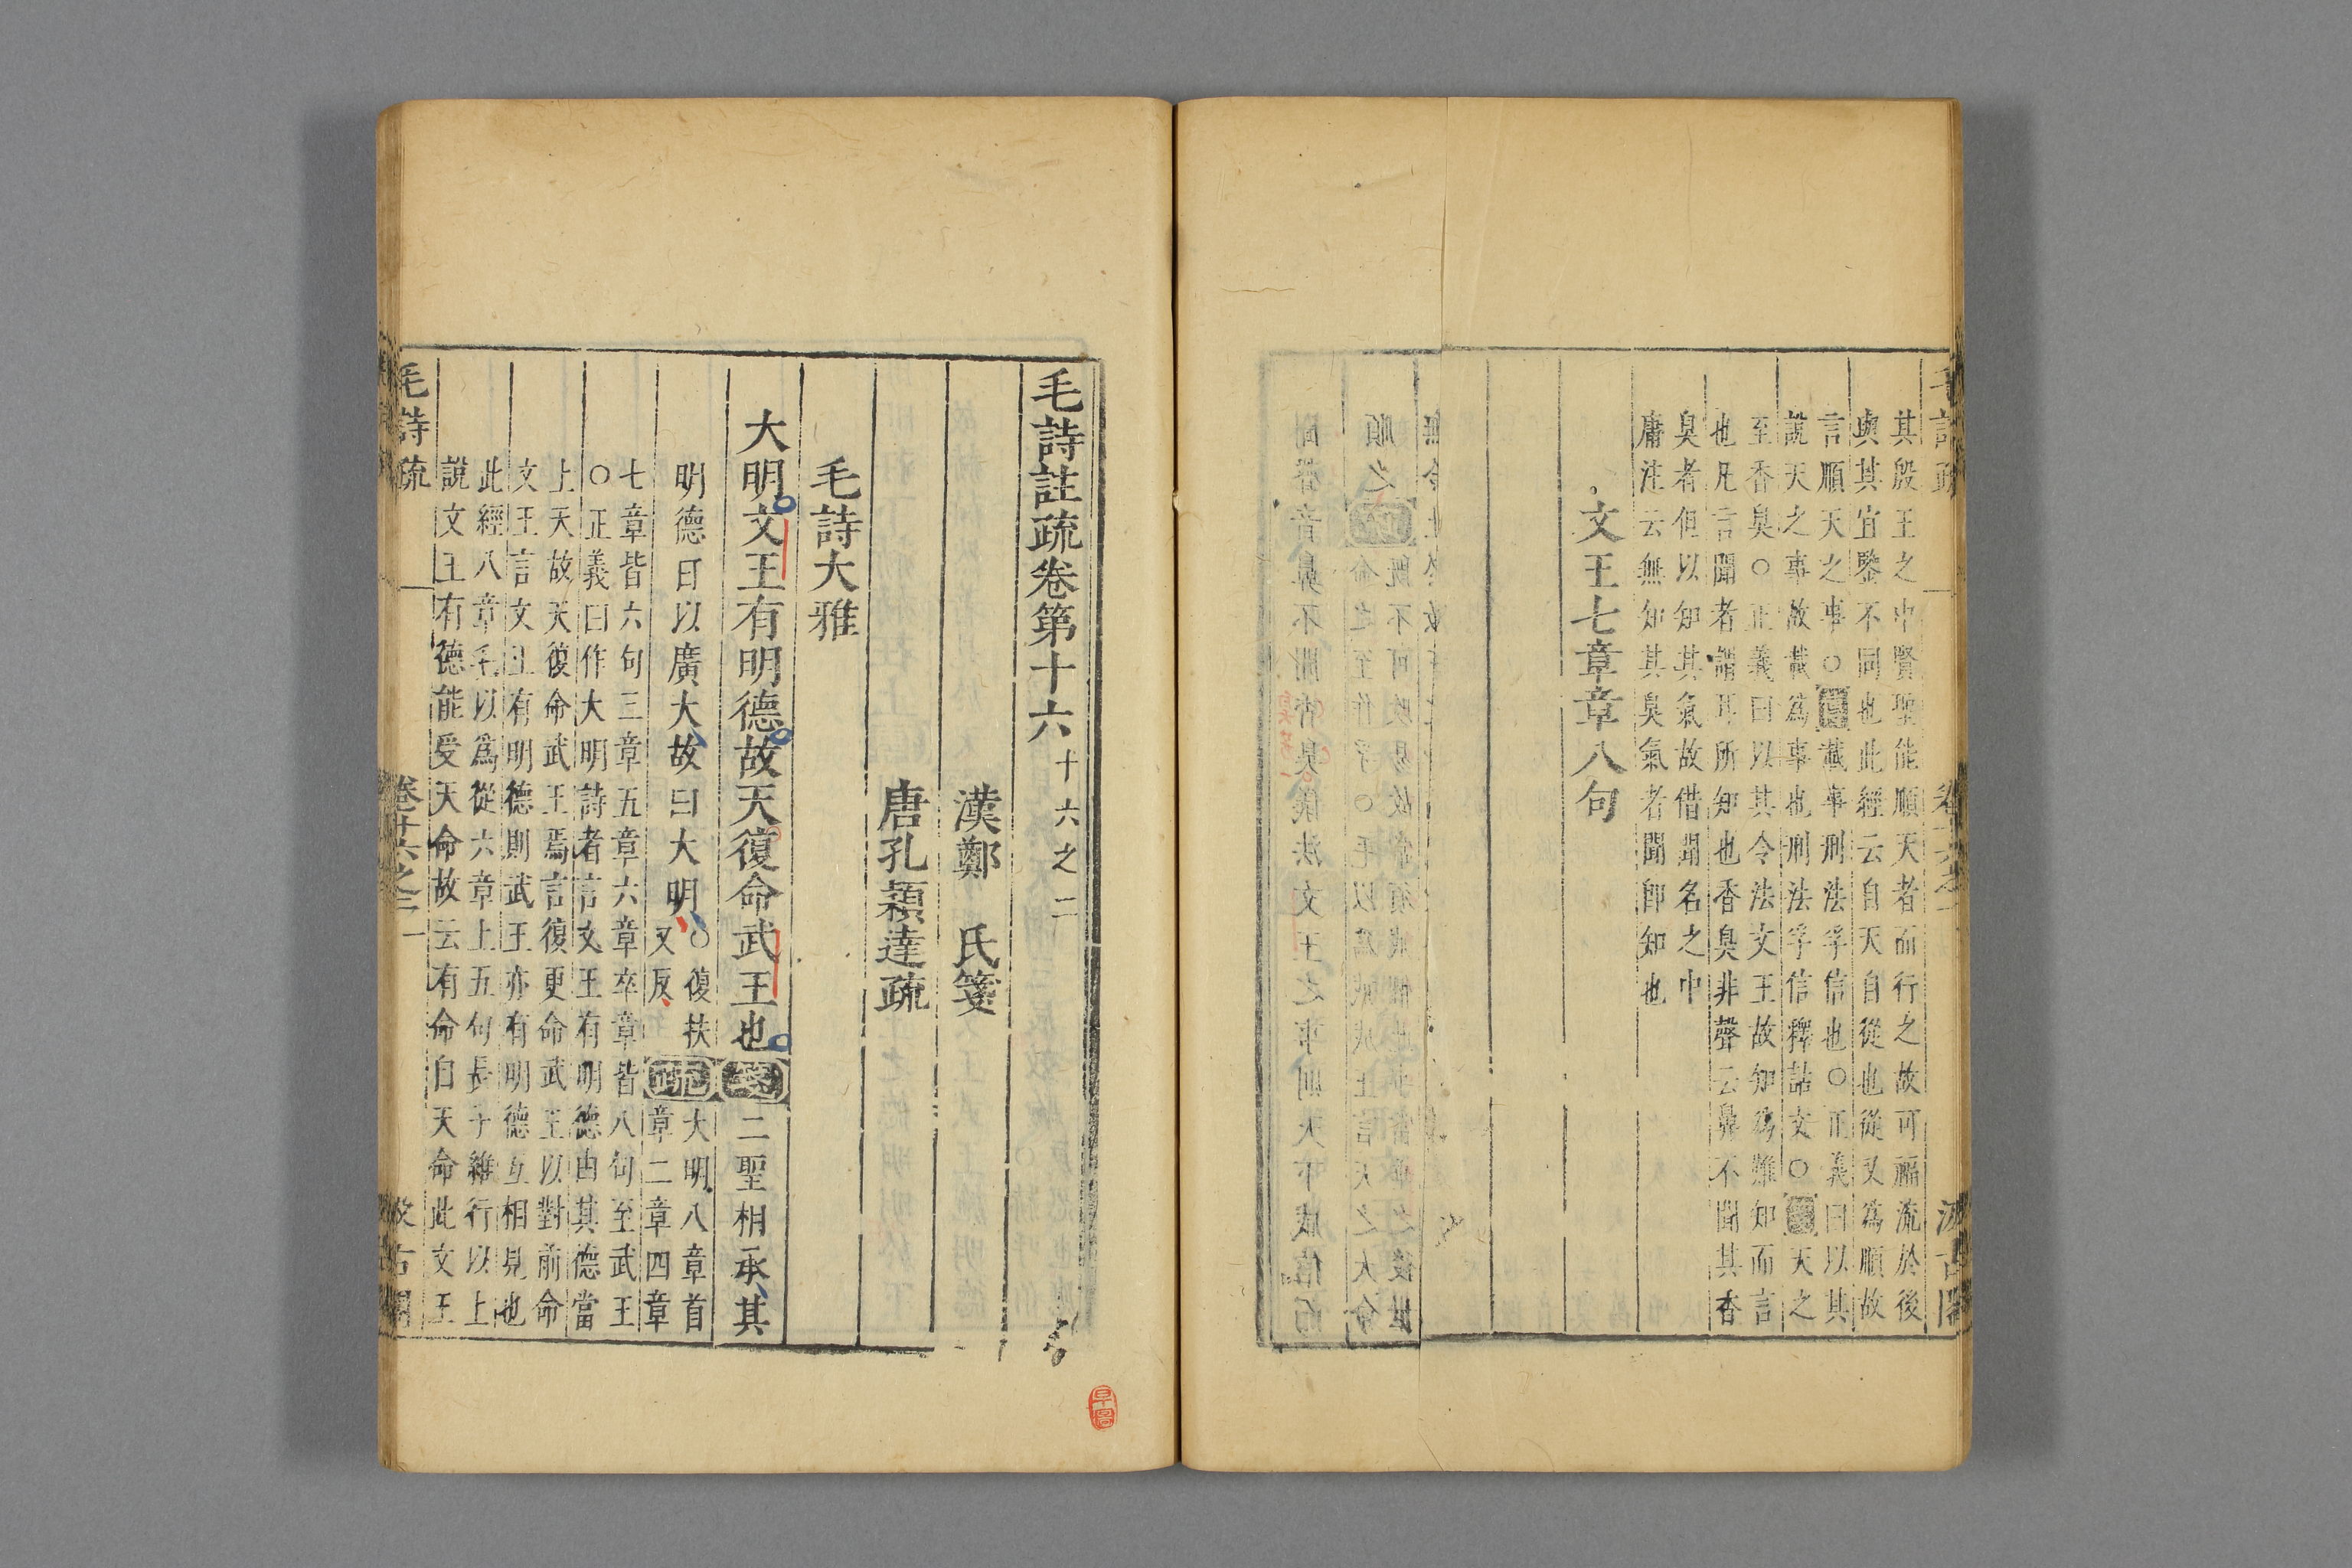 其殷王之中賢聖能順天者而行之故可福流於後
與其宜鑒不同也此經云自天自從也從又爲順故
言順天之事○傳載事刑法孚信也○正義曰以其
說天之事故載爲事也刑法孚信釋詁文○箋天之
至香臭○正義曰以其令法文王故知爲難知而言
也凡言聞者謂耳所知也香臭非聲云鼻不聞其香
臭者但以知其氣故借聞名之中
庸注云無知其臭氣者聞卽知也
文王七章章八句
毛詩註疏卷第十六 十六之二
漢鄭 氏箋
唐孔穎達疏
毛詩大雅
大明文王有明德故天復命武王也 箋 二聖相承其
明德日以廣大故曰大明 ○復扶
又反 疏 大明八章首
章二章四章
七章皆六句三章五章六章卒章皆八句至武王
○正義曰作大明詩者言文王有明德由其德當
上天故天復命武王焉言復更命武王以對前命
文王言文王有明德則武王亦有明德互相見也
此經八章毛以爲從六章上五句長子維行以上
說文王有德能受天命故云有命自天命此文王
毛詩疏 卷十六之二 一 汲古閣